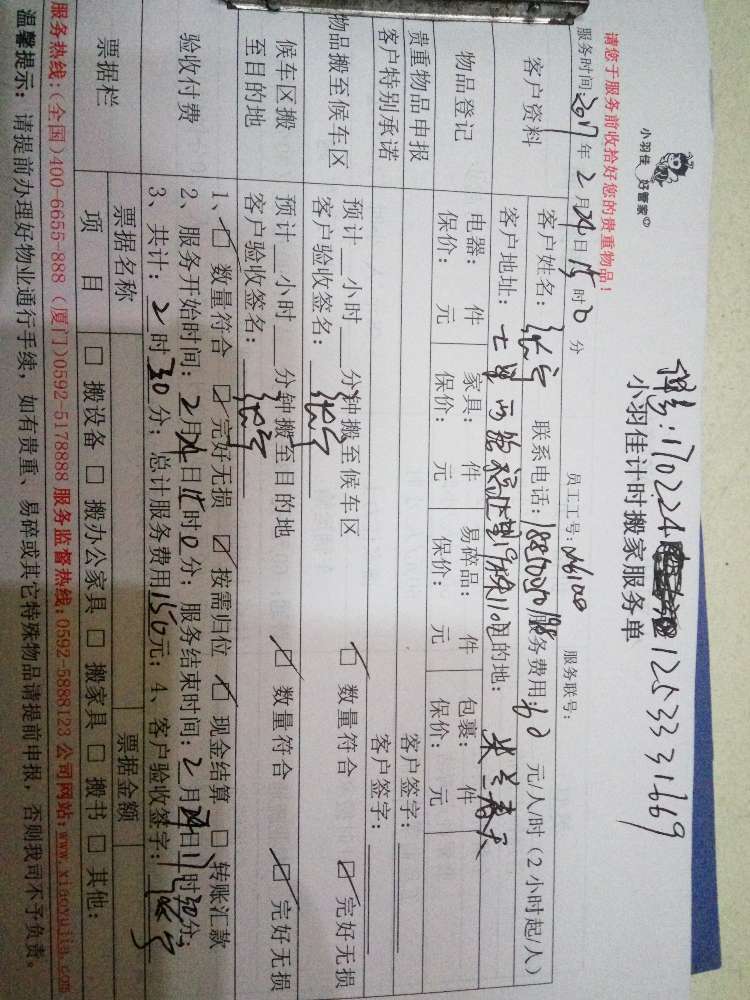 小羽佳 好管家
小羽佳计时搬家服务单
请您于服务前收拾好您的贵重物品！
员工工号： 服务联号：
服务时间：2017年2月24日15时0分
客户资料 客户姓名： 联系电话： 服务费用：60元/人/时（2小时起/人）
客户地址： 目的地：
物品登记 电器： 件 家具： 件 易碎品： 件 包裹： 件
保价： 元 保价： 元 保价： 元 保价： 元
贵重物品申报 客户签字：
客户特别承诺 客户签字：
物品搬至候车区 预计__小时__分钟搬至候车区 数量符合 完好无损
客户验收签名：
候车区搬至目的地 预计__小时__分钟搬至目的地 数量符合 完好无损
客户验收签名：
验收付费 1、 数量符合 完好无损 按需归位 现金结算 转账汇款
2、服务开始时间：2月24日15时0分；服务结束时间：2月24日17时30分；
3、共计：2时30分；总计服务费用150元；4、客户验收签字：
票据栏 票据名称 票据金额
项目 搬设备 搬办公家具 搬家具 搬书 其他：
服务热线：(全国)400-6655-888 (厦门)0592-5178888 服务监督热线：0592-5888123 公司网站：www.xiaoyujia.com
温馨提示：请提前办理好物业通行手续，如有贵重、易碎或其它特殊物品请提前申报，否则我司不予负责。